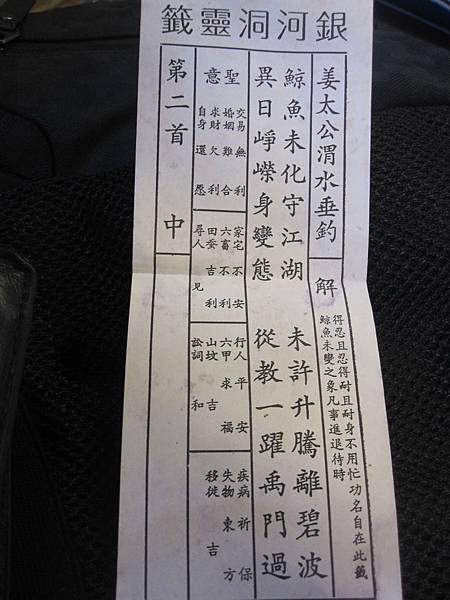 銀河洞靈籤
姜太公渭水垂釣
解
得忍且忍得耐且耐身不用忙功名自在此籤
鯨魚未變之象凡事進退待時
鯨魚未化守江湖 未許升騰離碧波
異日崢嶸身變態 從教一躍禹門過
聖意
交易無利
婚姻難合
求財欠利
自身還愿
家宅不安
六畜不利
田蚕吉利
尋人見
行人平安
六甲求福
山坟吉
訟詞和
疾病祈保
失物東方
移徙吉
第二首 中